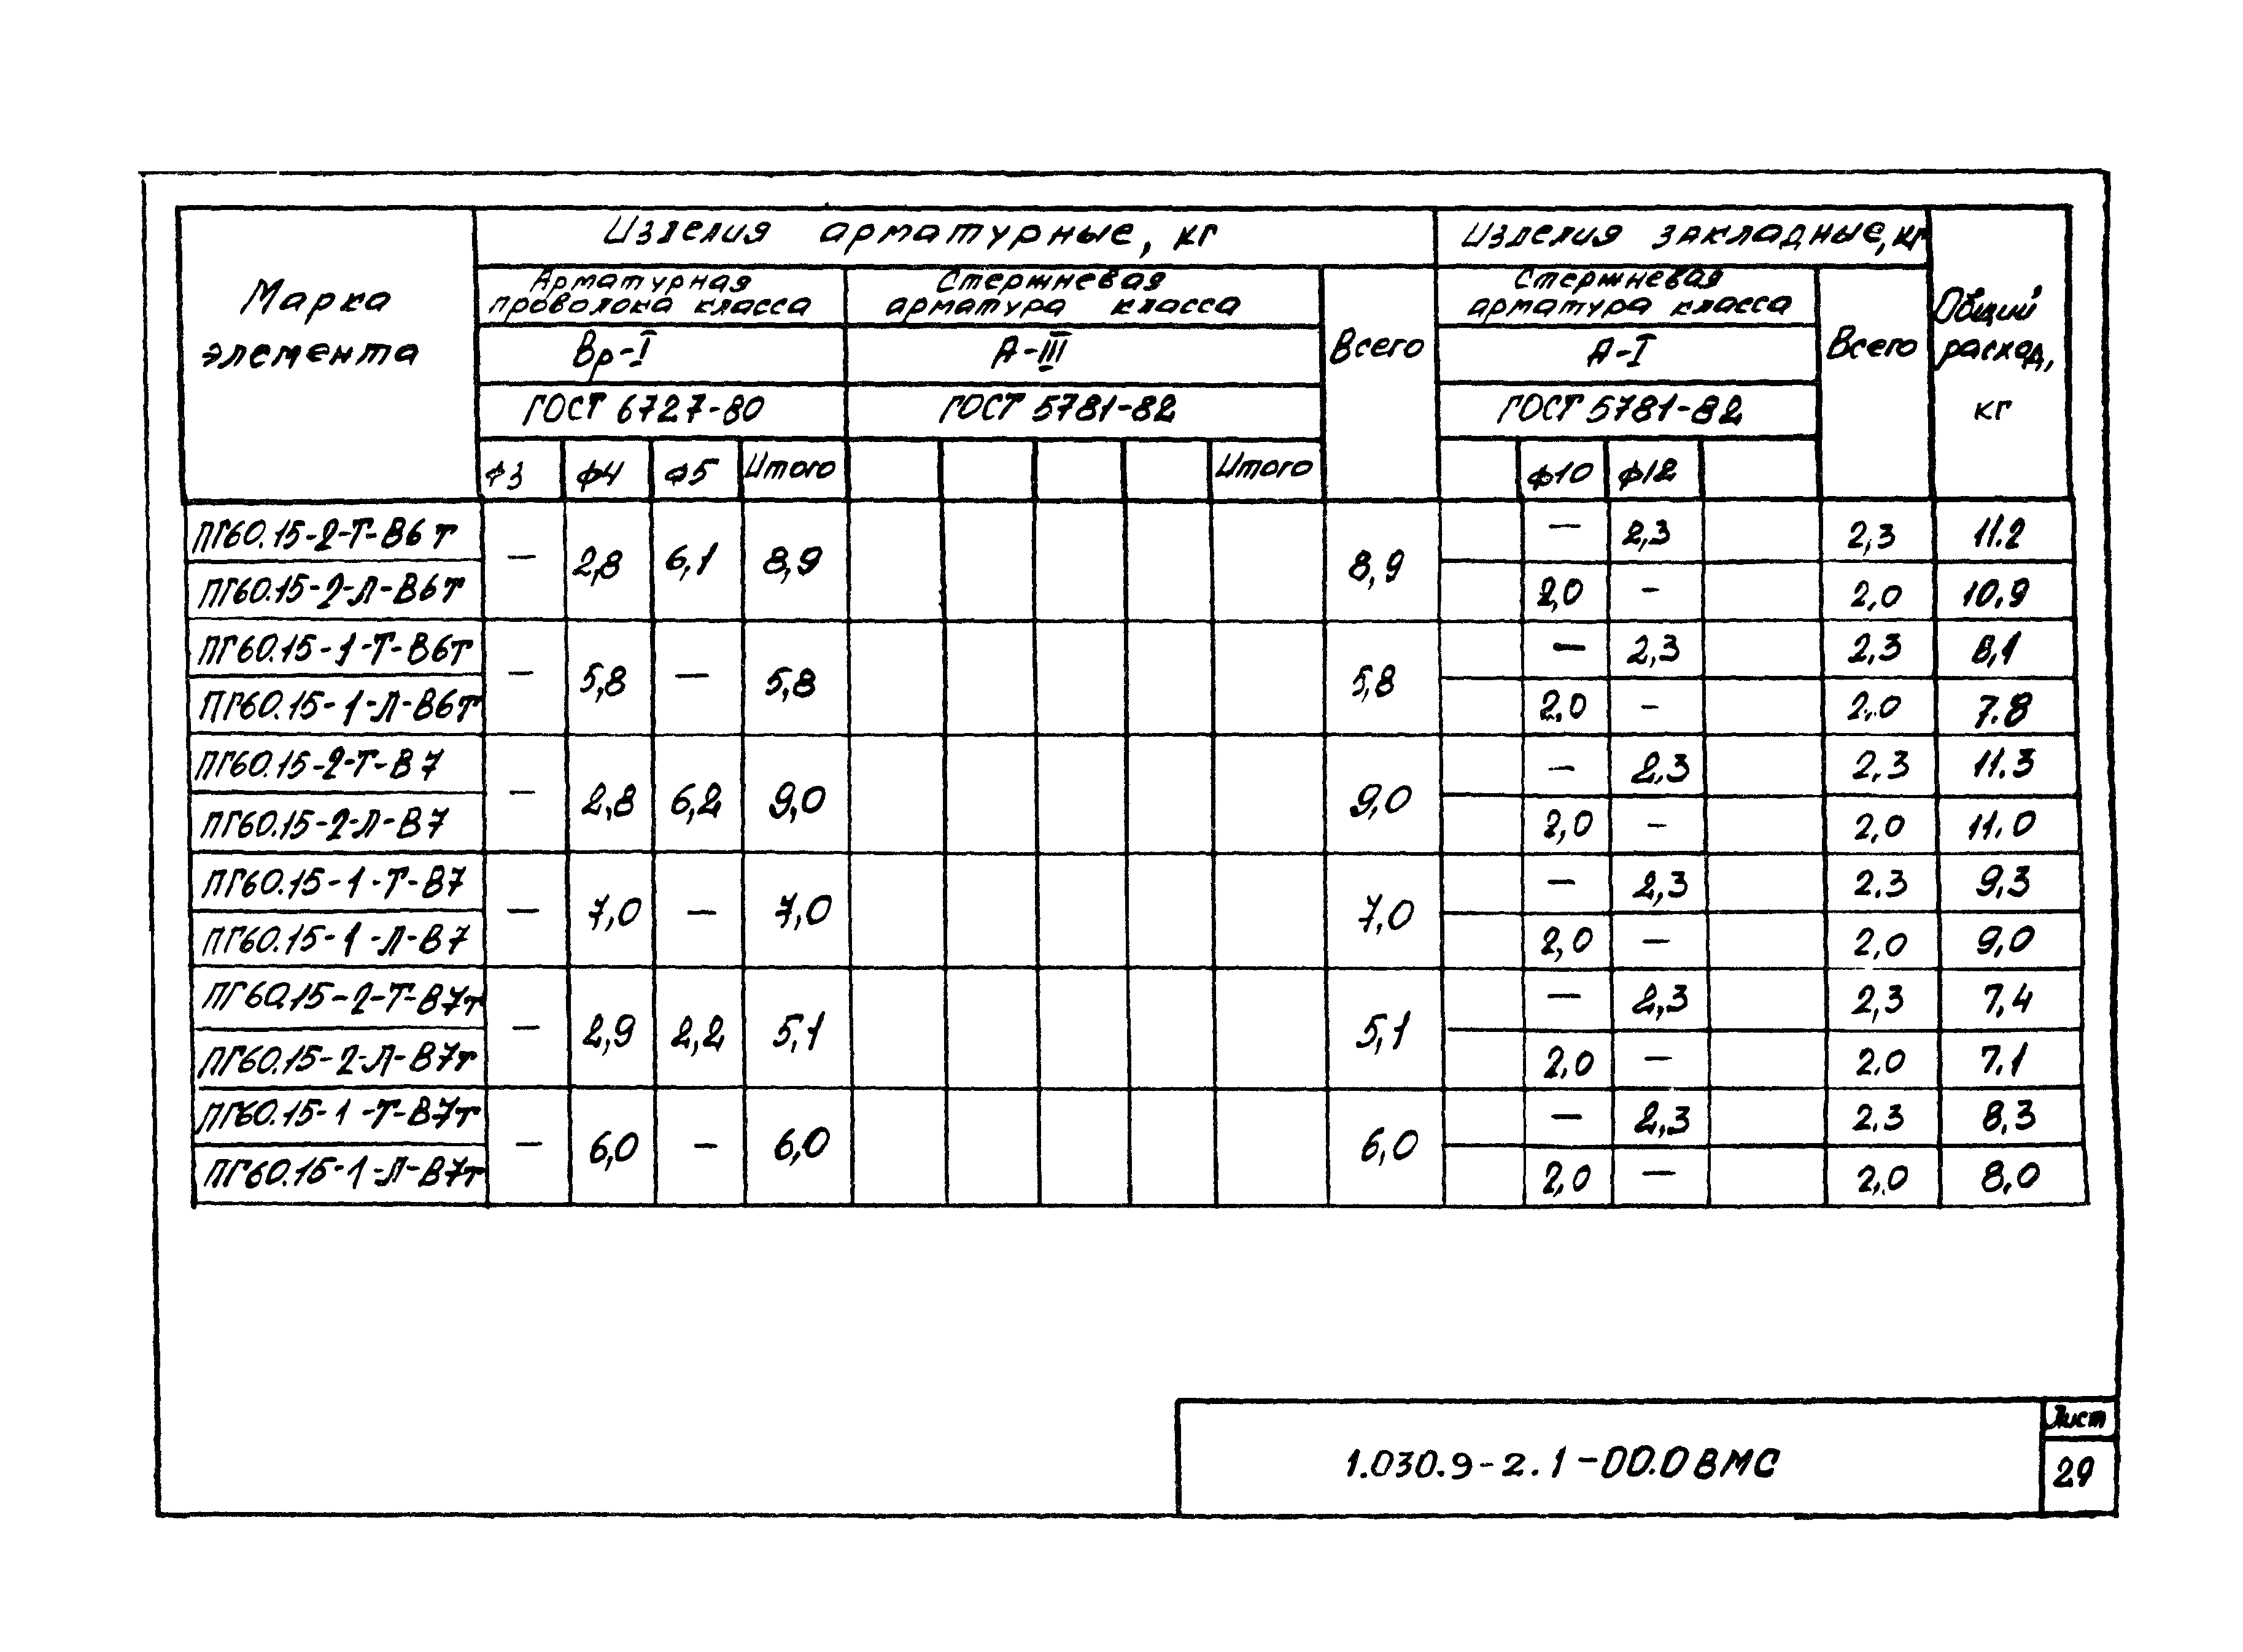 Марка элемента
Изделия арматурные, кг
Изделия закладные, кг
Общий расход, кг
Арматурная проволока класса
Стержневая арматура класса
Всего
Стержневая арматура класса
Всего
Вр-I
А-III
А-I
ГОСТ 6727-80
ГОСТ 5781-82
ГОСТ 5781-82
ф3 ф4 ф5 Итого Итого ф10 ф12
ПГ60.15-2-Т-В6т — 2,8 6,1 8,9 8,9 — 2,3 2,3 11.2
ПГ60.15-2-Л-В6т 2,0 - 2,0 10,9
ПГ60.15-1-Т-В6т — 5,8 — 5,8 5,8 — 2,3 2,3 8,1
ПГ60.15-1-Л-В6т 2,0 - 2,0 7.8
ПГ60.15-2-Т-В7 — 2,8 6,2 9,0 9,0 — 2,3 2,3 11.3
ПГ60.15-2-Л-В7 2,0 - 2,0 11.0
ПГ60.15-1-Т-В7 — 7,0 — 7,0 7,0 — 2,3 2.3 9,3
ПГ60.15-1-Л-В7 2,0 — 2,0 9,0
ПГ60.15-2-Т-В7т — 2,9 2,2 5,1 5,1 — 2,3 2,3 7,4
ПГ60.15-2-Л-В7т 2,0 — 2,0 7,1
ПГ60.15-1-Т-В7т — 6,0 - 6,0 6,0 — 2,3 2.3 8,3
ПГ60.15-1-Л-В7т 2,0 — 2,0 8,0
1.030.9-2.1-00.0ВМС
Лист
29